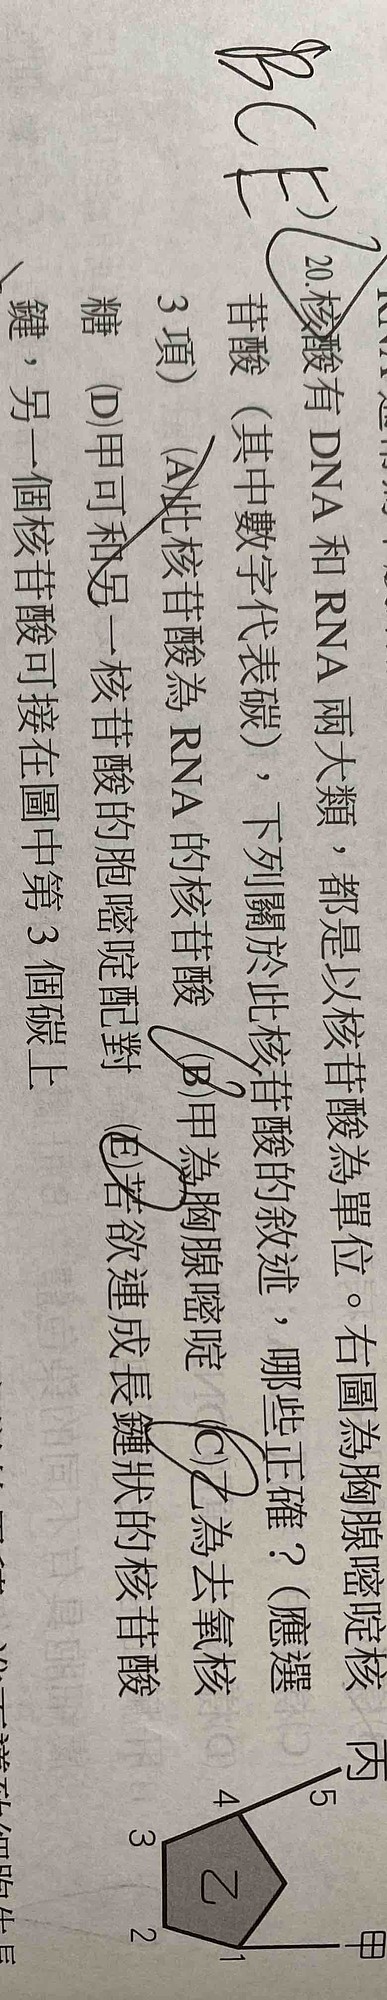 BCE
20.核酸有 DNA 和 RNA 兩大類，都是以核苷酸為單位。右圖為胸腺嘧啶核
苷酸（其中數字代表碳），下列關於此核苷酸的敘述，哪些正確？（應選
3 項） (A)此核苷酸為 RNA 的核苷酸 (B)甲為胸腺嘧啶 (C)乙為去氧核
糖 (D)甲可和另一核苷酸的胞嘧啶配對 (E)若欲連成長鏈狀的核苷酸
鏈，另一個核苷酸可接在圖中第 3 個碳上
丙 甲
5
4 乙 1
3 2